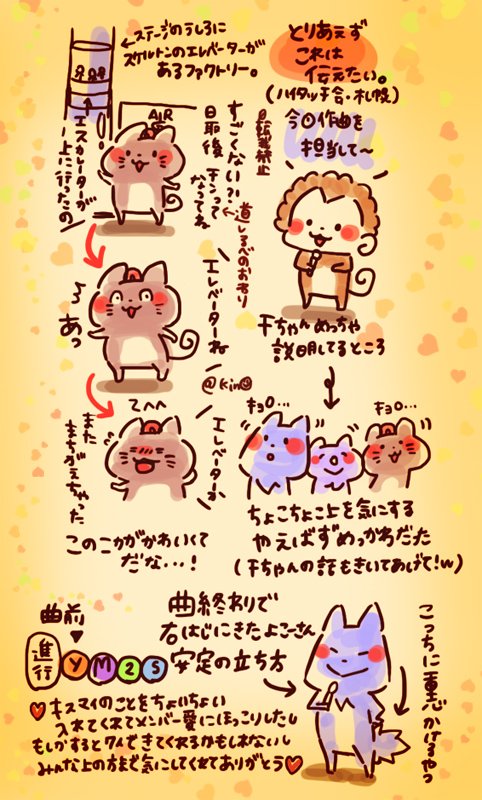 とりあえず
これは
伝えたい。
(ハイタッチ会・札幌)
今回作曲を
担当して〜
千ちゃんめっちゃ
説明してるところ
キョロ…
キョロ…
ちょこちょこ上を気にする
やえばずめっかわだった
(千ちゃんの話もきいてあげて!w)
←ステージのうしろに
スケルトンのエレベーターが
あるファクトリー。
エスカレーターが
上に行ったの
AIR
すごくない?!
最後
チンって
なってね
転載禁止
道しるべのおわり
エレベーターね
あっ
@kin
エレベーターか
また
まちがえちゃった
このこががかわいくて
だな...!
曲前
進行
YM2S
曲終わりで
右はじにきたよこーさん
安定の立ち方
こっちに重心かけるやつ
キスマイのことをちょいちょい
入れてくれてメンバー愛にほっこりしたし
もしかするとワイできてくれるかもしれないし
みんな上の方まで気にしてくれてありがとう